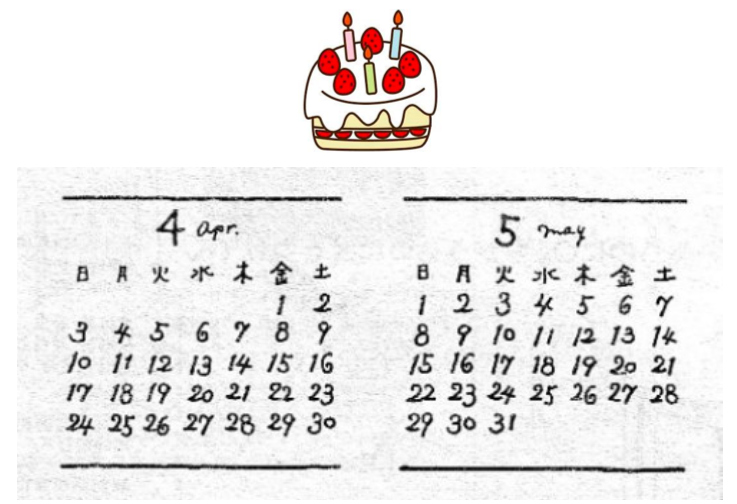 4 Apr.
日 月 火 水 木 金 土
1 2
3 4 5 6 7 8 9
10 11 12 13 14 15 16
17 18 19 20 21 22 23
24 25 26 27 28 29 30
5 May
日 月 火 水 木 金 土
1 2 3 4 5 6 7
8 9 10 11 12 13 14
15 16 17 18 19 20 21
22 23 24 25 26 27 28
29 30 31